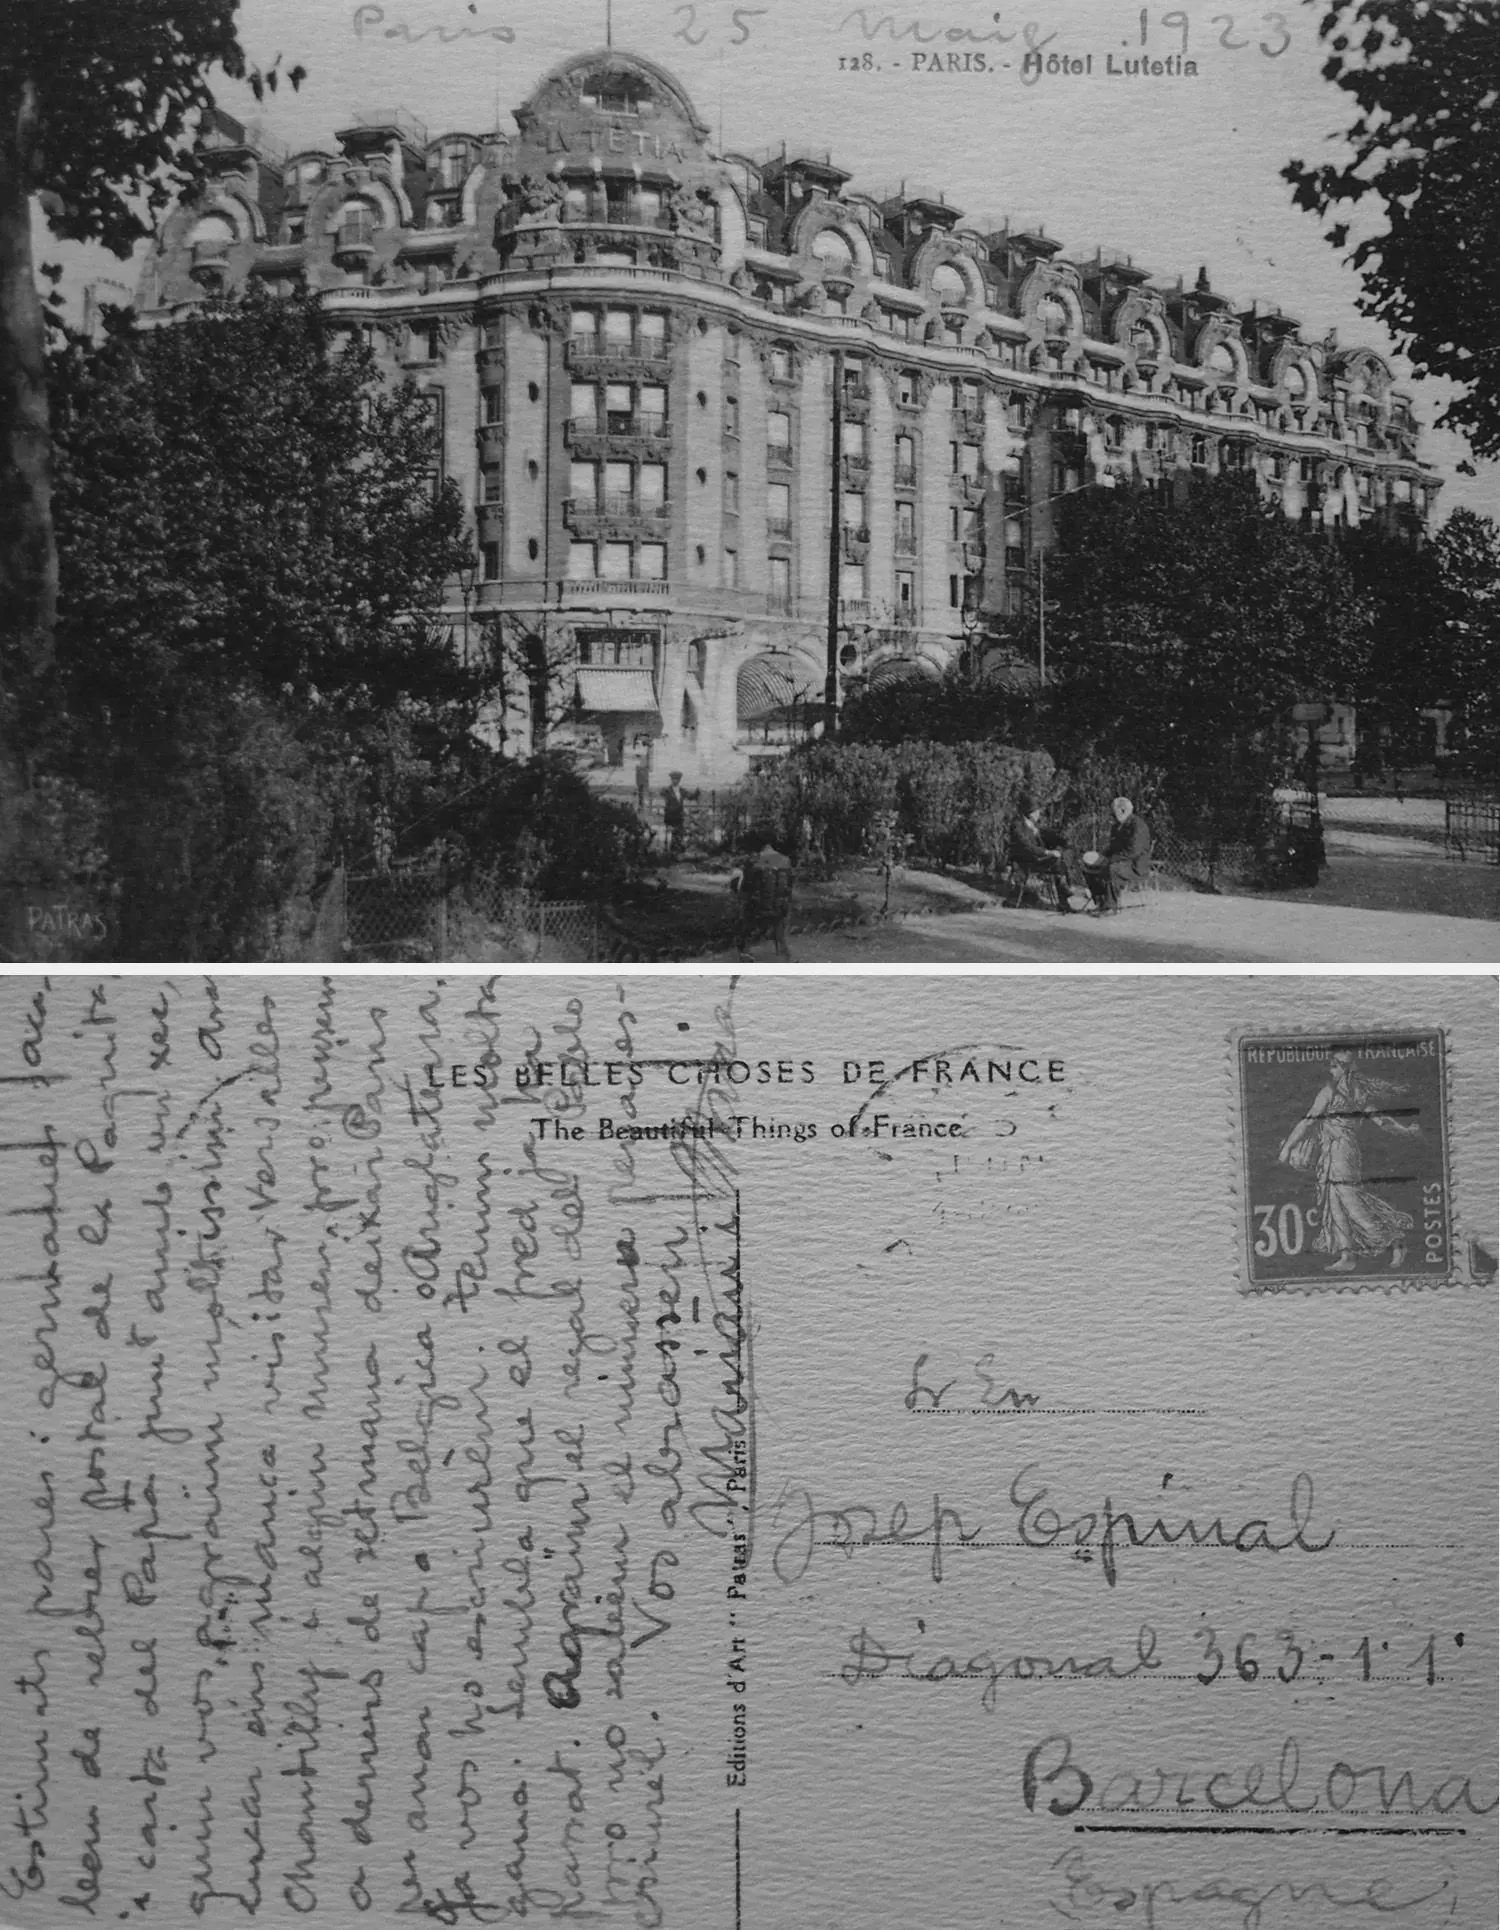 Paris 25 Maig 1923
128. - PARIS. - Hôtel Lutetia
LUTETIA
PATRAS
Estimats pares i germanes aca-
bem de rebrer postal de la Paquita
i carta del Papá junt amb un xec,
quin vos agraïm moltissim, ara
encar ens manca visitar Versalles
Chantilly i algun museu,
a demés de setmana deixar Paris
per anar cap a Belgica o Anglaterra,
ja vos ho escriurém. Tenim molta
gana. Sembla que el fred ja ha
passat. Agraïm el regal del Pablo
pro no sabém el numero per es-
criurél. Vos abrassen
Maria i
LES BELLES CHOSES DE FRANCE
The Beautiful Things of France
Editions d'Art "Patras", Paris
REPUBLIQUE FRANÇAISE
30c
POSTES
Sr En
Josep Espinal
Diagonal 363-1º 1ª
Barcelona
(Espagne)